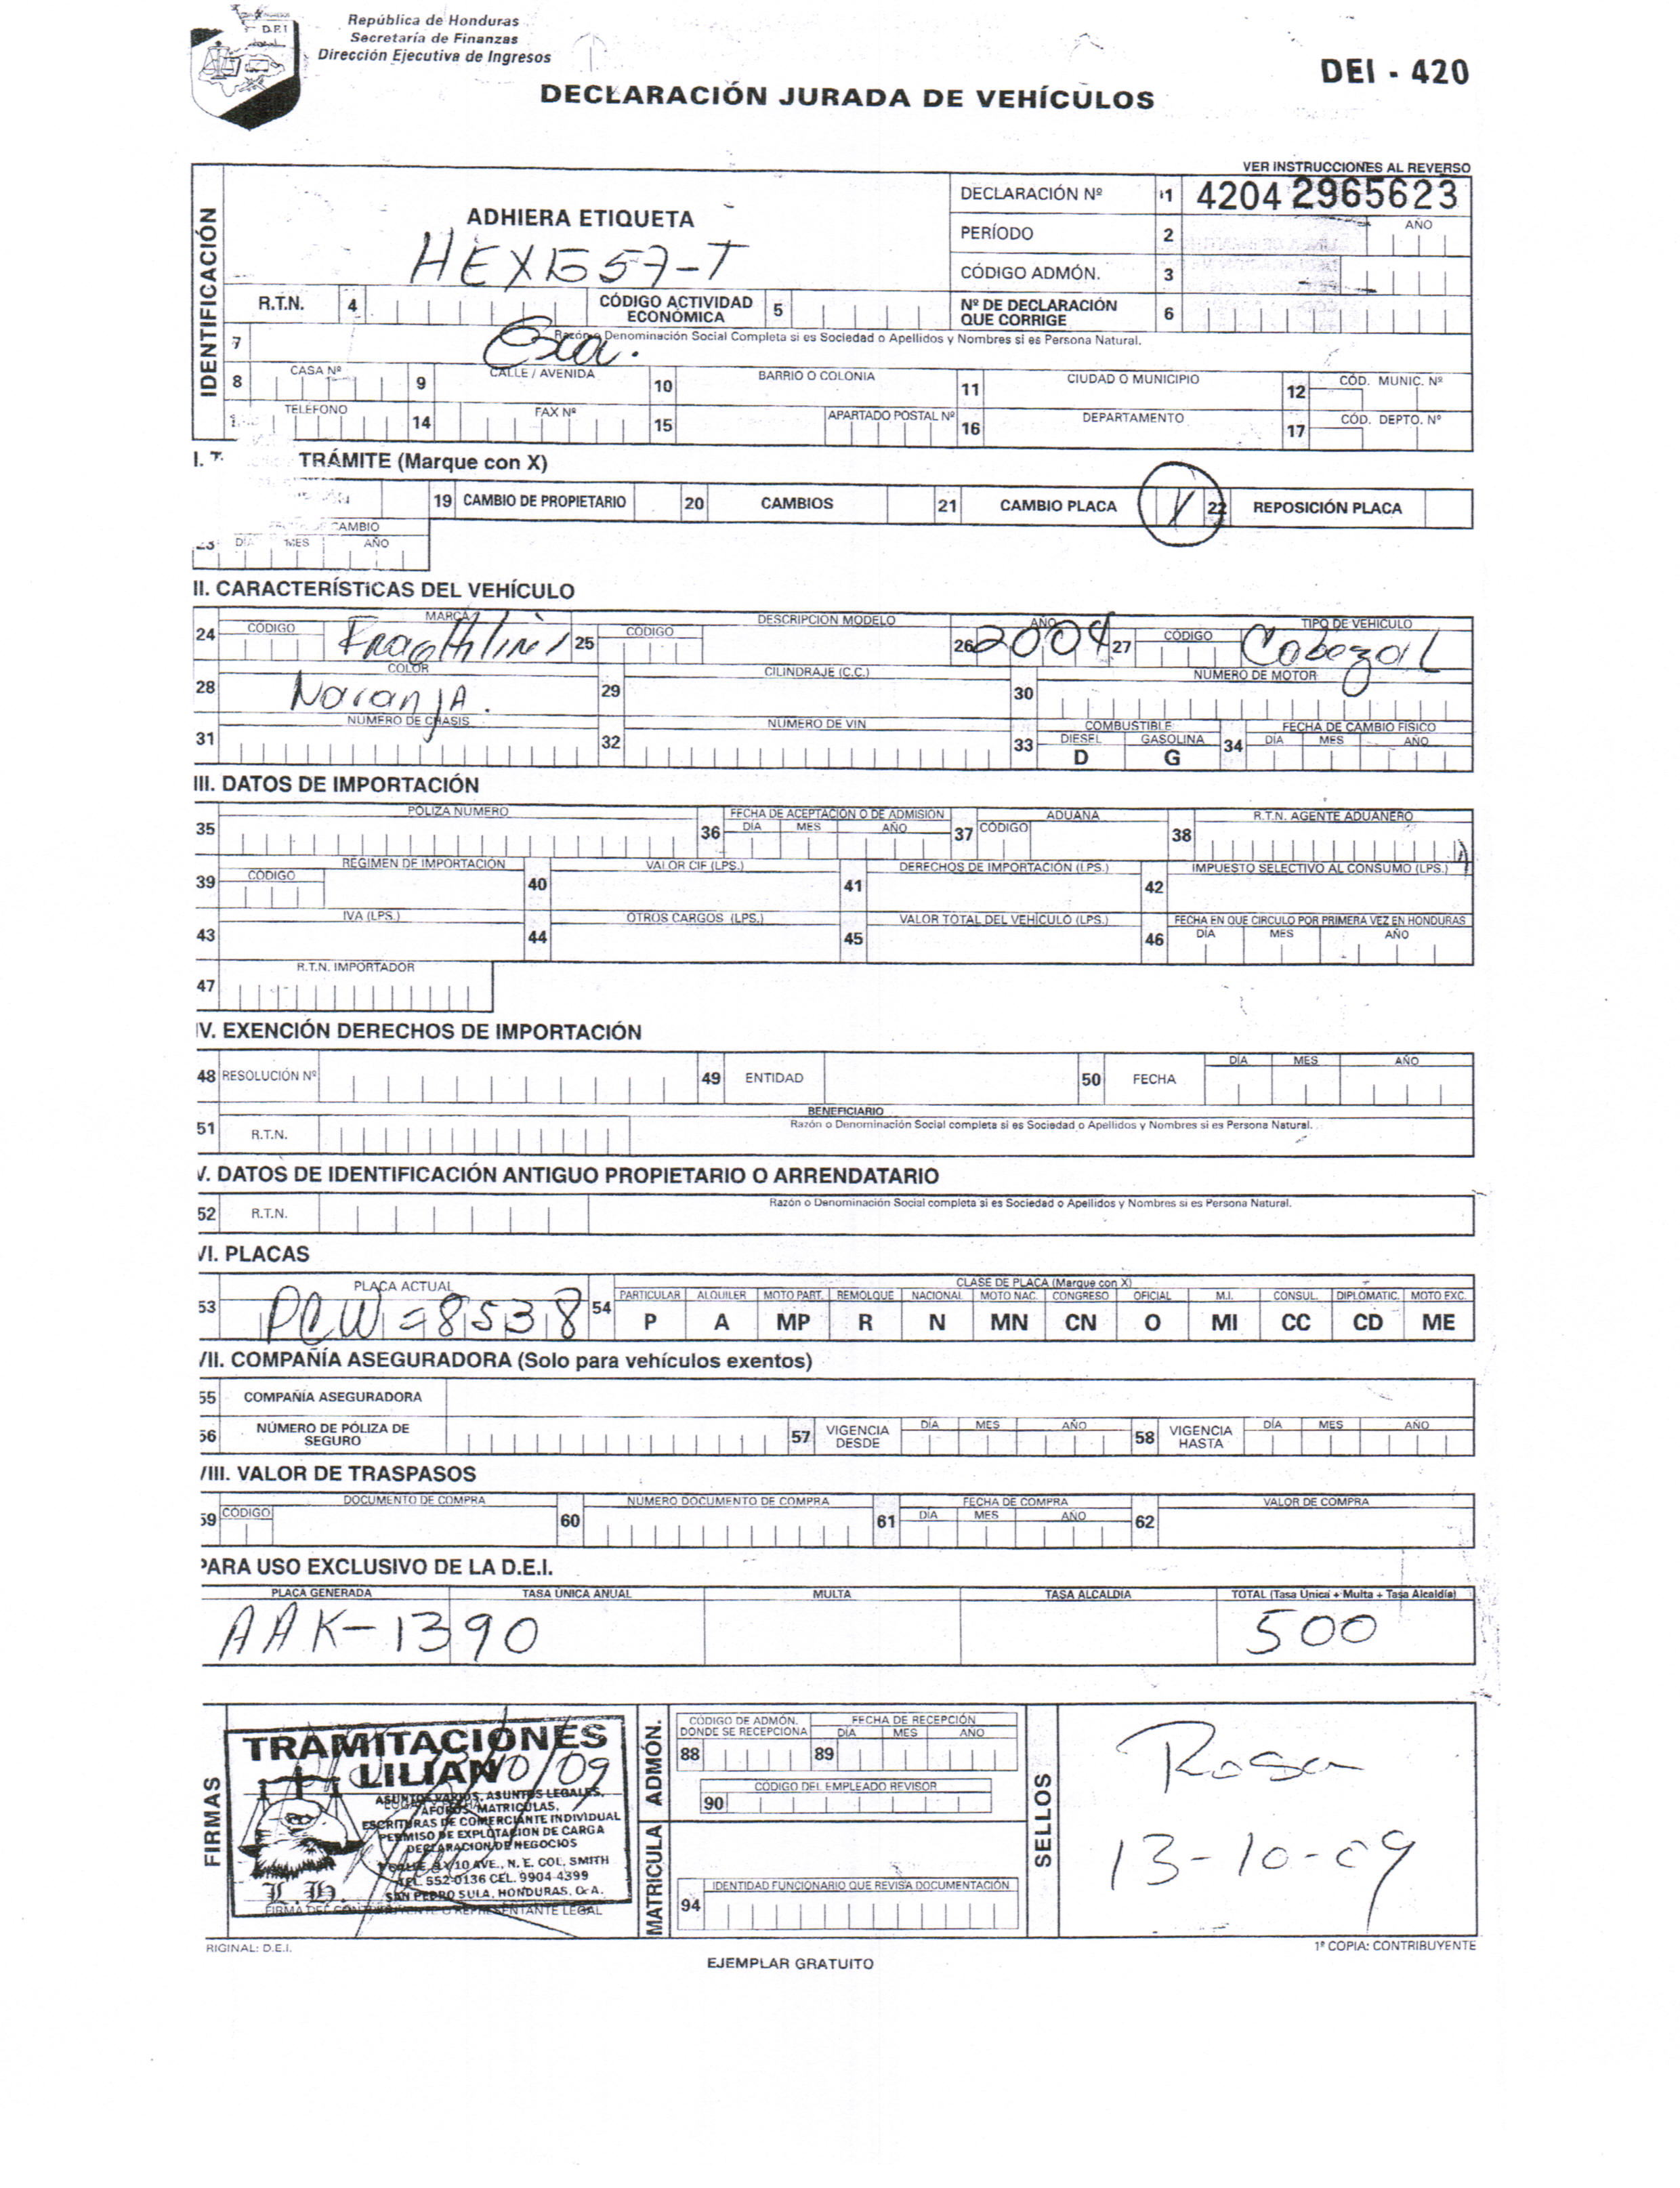 República de Honduras
Secretaría de Finanzas
Dirección Ejecutiva de Ingresos
D.E.I
DEI - 420
DECLARACIÓN JURADA DE VEHÍCULOS
VER INSTRUCCIONES AL REVERSO
IDENTIFICACIÓN
ADHIERA ETIQUETA
DECLARACIÓN Nº 1 4204 2965623
PERÍODO 2 AÑO
CÓDIGO ADMÓN. 3
R.T.N. 4 CÓDIGO ACTIVIDAD ECONÓMICA 5 Nº DE DECLARACIÓN QUE CORRIGE 6
7 Razón o Denominación Social Completa si es Sociedad o Apellidos y Nombres si es Persona Natural.
8 CASA Nº 9 CALLE / AVENIDA 10 BARRIO O COLONIA 11 CIUDAD O MUNICIPIO 12 CÓD. MUNIC. Nº
TELÉFONO 14 FAX Nº 15 APARTADO POSTAL Nº 16 DEPARTAMENTO 17 CÓD. DEPTO. Nº
I. TRÁMITE (Marque con X)
19 CAMBIO DE PROPIETARIO 20 CAMBIOS 21 CAMBIO PLACA X 22 REPOSICIÓN PLACA
CAMBIO
23 DÍA MES AÑO
II. CARACTERÍSTICAS DEL VEHÍCULO
24 CÓDIGO MARCA 25 CÓDIGO DESCRIPCIÓN MODELO 26 AÑO 2004 27 CÓDIGO TIPO DE VEHÍCULO Cabezal
28 COLOR Naranja. 29 CILINDRAJE (C.C.) 30 NÚMERO DE MOTOR
31 NÚMERO DE CHASIS 32 NÚMERO DE VIN 33 COMBUSTIBLE DIESEL D GASOLINA G 34 FECHA DE CAMBIO FÍSICO DÍA MES AÑO
III. DATOS DE IMPORTACIÓN
35 PÓLIZA NÚMERO 36 FECHA DE ACEPTACIÓN O DE ADMISIÓN DÍA MES AÑO 37 CÓDIGO ADUANA 38 R.T.N. AGENTE ADUANERO
39 CÓDIGO RÉGIMEN DE IMPORTACIÓN 40 VALOR CIF (LPS.) 41 DERECHOS DE IMPORTACIÓN (LPS.) 42 IMPUESTO SELECTIVO AL CONSUMO (LPS.)
43 IVA (LPS.) 44 OTROS CARGOS (LPS.) 45 VALOR TOTAL DEL VEHÍCULO (LPS.) 46 FECHA EN QUE CIRCULO POR PRIMERA VEZ EN HONDURAS DÍA MES AÑO
47 R.T.N. IMPORTADOR
IV. EXENCIÓN DERECHOS DE IMPORTACIÓN
48 RESOLUCIÓN Nº 49 ENTIDAD 50 FECHA DÍA MES AÑO
51 R.T.N. BENEFICIARIO Razón o Denominación Social completa si es Sociedad o Apellidos y Nombres si es Persona Natural.
V. DATOS DE IDENTIFICACIÓN ANTIGUO PROPIETARIO O ARRENDATARIO
52 R.T.N. Razón o Denominación Social completa si es Sociedad o Apellidos y Nombres si es Persona Natural.
VI. PLACAS
53 PLACA ACTUAL PCW=8538 54 CLASE DE PLACA (Marque con X)
PARTICULAR ALQUILER MOTO PART. REMOLQUE NACIONAL MOTO NAC. CONGRESO OFICIAL M.I. CONSUL. DIPLOMATIC. MOTO EXC.
P A MP R N MN CN O MI CC CD ME
VII. COMPAÑÍA ASEGURADORA (Solo para vehículos exentos)
55 COMPAÑÍA ASEGURADORA
56 NÚMERO DE PÓLIZA DE SEGURO 57 VIGENCIA DESDE DÍA MES AÑO 58 VIGENCIA HASTA DÍA MES AÑO
VIII. VALOR DE TRASPASOS
59 CÓDIGO DOCUMENTO DE COMPRA 60 NÚMERO DOCUMENTO DE COMPRA 61 FECHA DE COMPRA DÍA MES AÑO 62 VALOR DE COMPRA
PARA USO EXCLUSIVO DE LA D.E.I.
PLACA GENERADA TASA ÚNICA ANUAL MULTA TASA ALCALDÍA TOTAL (Tasa Única + Multa + Tasa Alcaldía)
AAK-1390 500
FIRMAS
TRAMITACIONES
LILIAN
ASUNTOS VARIOS, ASUNTOS LEGALES,
AFOROS, MATRICULAS,
ESCRITURAS DE COMERCIANTE INDIVIDUAL
PERMISO DE EXPLOTACION DE CARGA
DECLARACION DE NEGOCIOS
10 AVE., N. E. COL. SMITH
TEL. 552-0136 CEL. 9904-4399
SAN PEDRO SULA, HONDURAS, C. A.
L. H.
FIRMA DEL CONTRIBUYENTE O REPRESENTANTE LEGAL
MATRICULA ADMÓN.
CÓDIGO DE ADMÓN. DONDE SE RECEPCIONA 88 FECHA DE RECEPCIÓN 89 DÍA MES AÑO
CÓDIGO DEL EMPLEADO REVISOR
90
IDENTIDAD FUNCIONARIO QUE REVISA DOCUMENTACIÓN
94
SELLOS
Rosa
13-10-09
RIGINAL: D.E.I.
1ª COPIA: CONTRIBUYENTE
EJEMPLAR GRATUITO